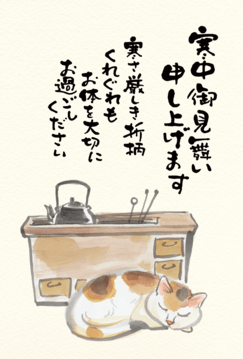 寒中御見舞い
申し上げます
寒さ厳しき折柄
くれぐれも
お体を大切に
お過ごし
ください